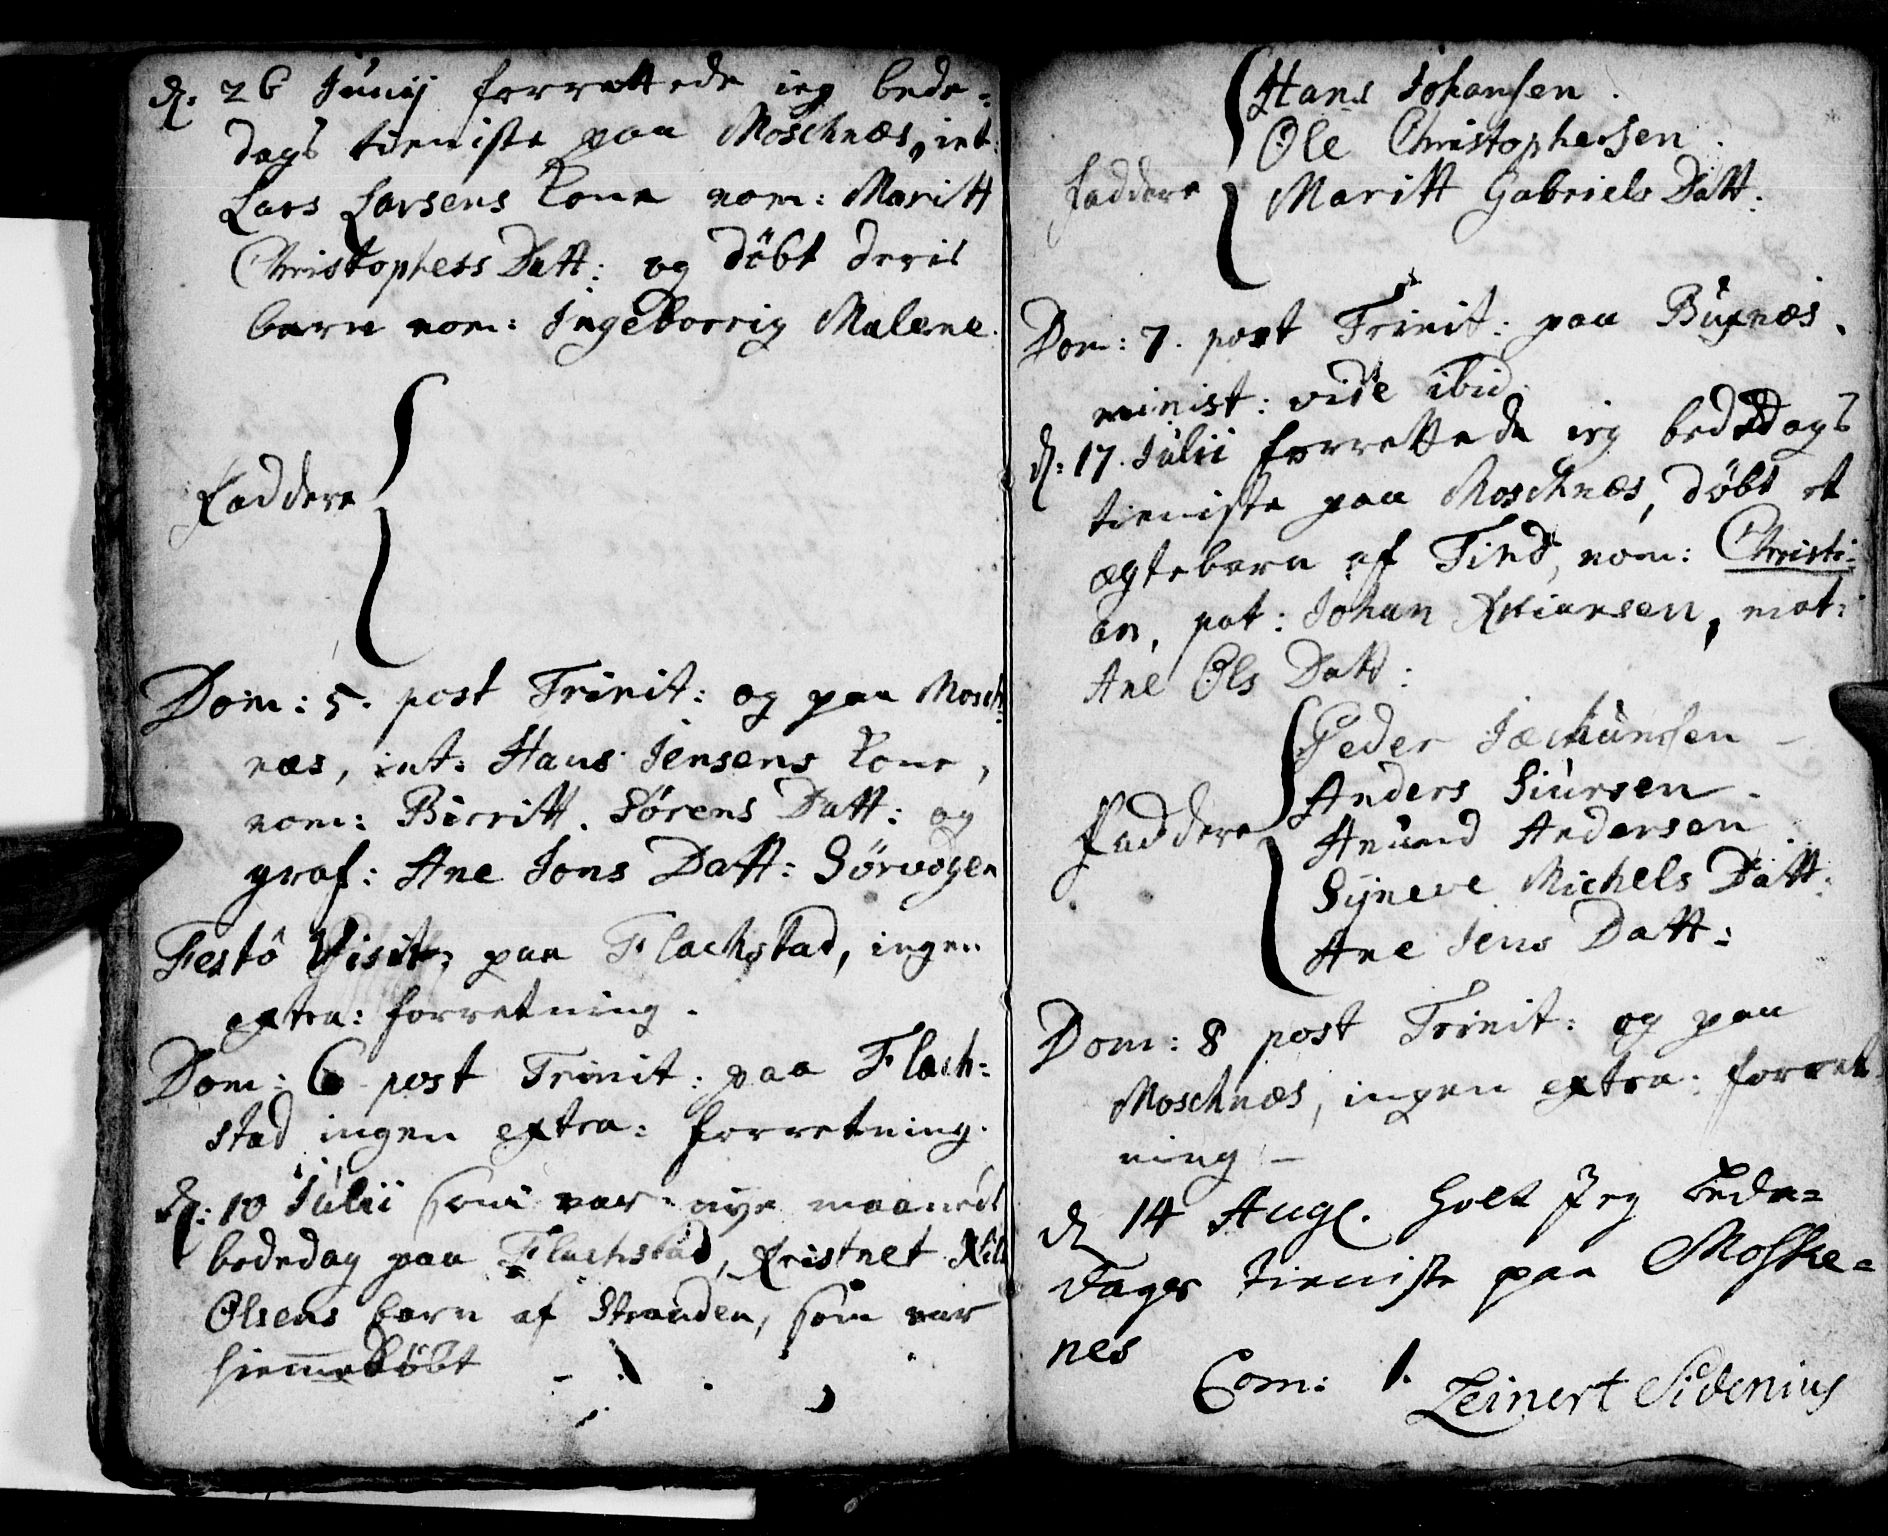 d: 26 Junij forrettede ieg bede-
dags tieniste paa Moschnæs, int:
Lars Larsens Kone nom: Maritt
Christophers Datt: og døbt deris
barn nom: Ingeborrig Malene.
Faddere
Dom: 5. post Trinit: og paa Mosch-
næs, int: Hans Jensens Kone,
nom: Birritt Sørens Datt: og
graf: Ane Jons Datt: Sørvogen
Festô Visit: paa Flachstad, ingen
extra: forretning.
Dom: 6 post Trinit: paa Flach-
stad ingen extra: forretning.
d: 10 Julii som var nye maaneds
bededag paa Flachstad, Kristnet Nils
Olsens barn af Stranden, som var
hiemmedøbt
Hans Johansen.
Ole Christophersen.
Faddere Maritt Gabriels Datt:
Dom: 7. post Trinit: paa Buxnæs.
minist: vide ibid:
d: 17. Julii forrettede ieg bededags
tieniste paa Moschnæs, døbt et
ægtebarn af Tind, nom: Christi-
an, pat: Johan Ktiansen, mat:
Ane Ols Datt:
Peder Jachunsen
Anders Siursen.
Faddere Amund Andersen
Syneve Michels Datt:
Ane Jens Datt:
Dom: 8 post Trinit: og paa
Moschnæs, ingen extra: forret-
ning -
d 14 Aug. holt Jeg Bede-
dages tieniste paa Moskie-
nes
Com: 1. Leinert Sidenius